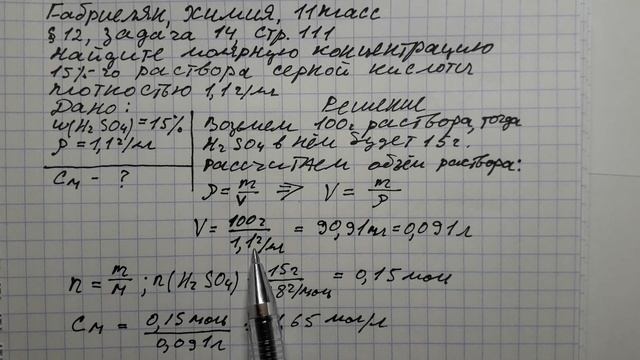 Габриелян, химия, 11 класс
§ 12, задача 14, стр. 111
Найдите молярную концентрацию
15%-го раствора серной кислоты
плотностью 1,1 г/мл
Дано:
Решение
w(H2SO4) = 15%
ρ = 1,1 г/мл
См - ?
Возьмем 100г раствора, тогда
H2SO4 в нём будет 15г.
Рассчитаем объём раствора:
ρ = m/V => V = m/ρ
V = 100г / 1,1 г/мл = 90,91 мл = 0,091 л
n = m/M ; n(H2SO4) 15г / 8 г/моль = 0,15 моль
См = 0,15 моль / 0,091 л = ,65 моль/л